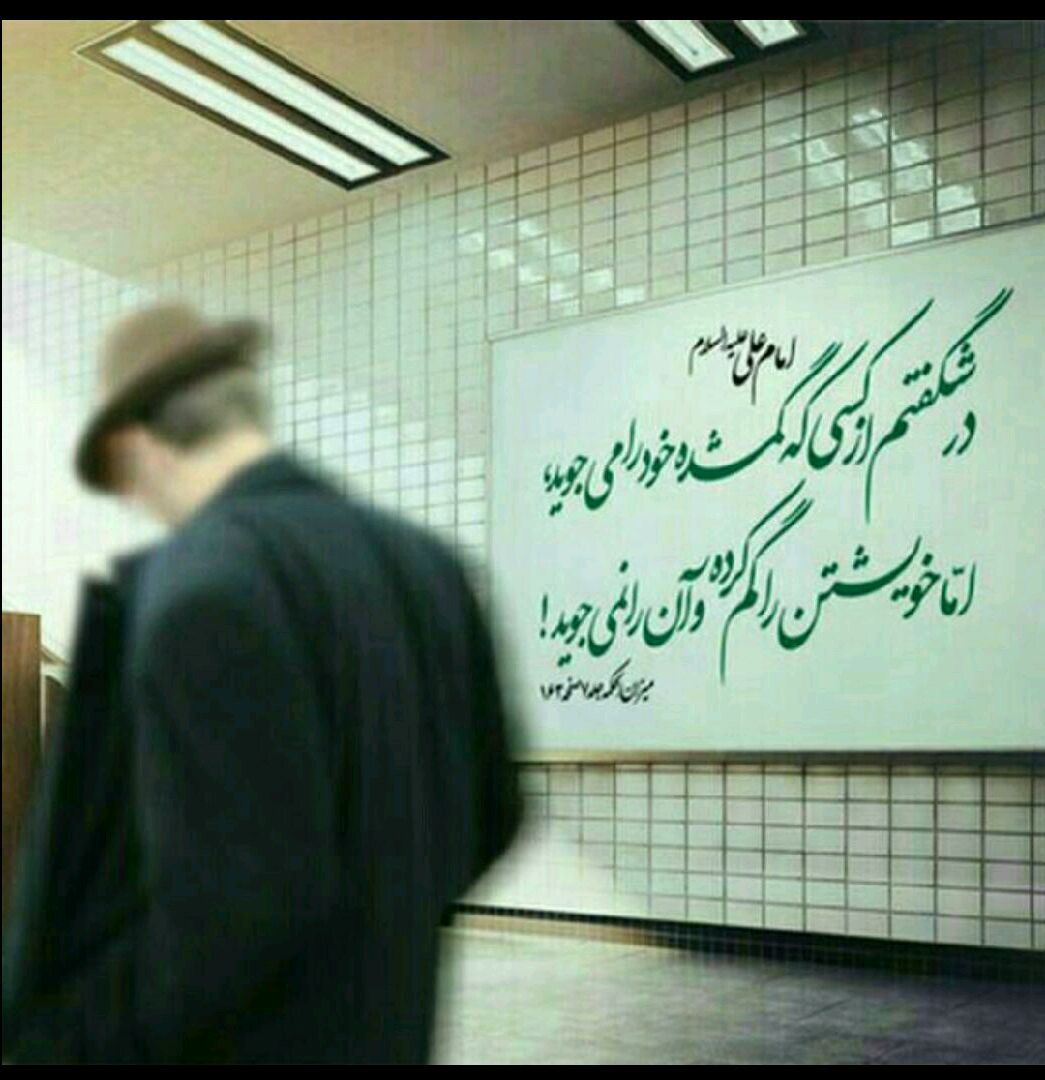 امام علی علیه السلام
در شگفتم از کسی که گمشده خود را می جوید،
امّا خویشتن را گم کرده و آن را نمی جوید!
میزان الحکمه جلد ۷ صفحه